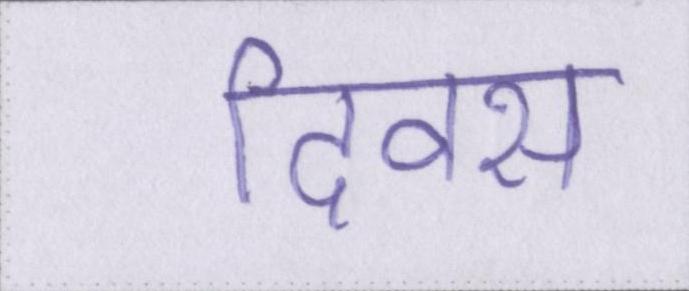 दिवस